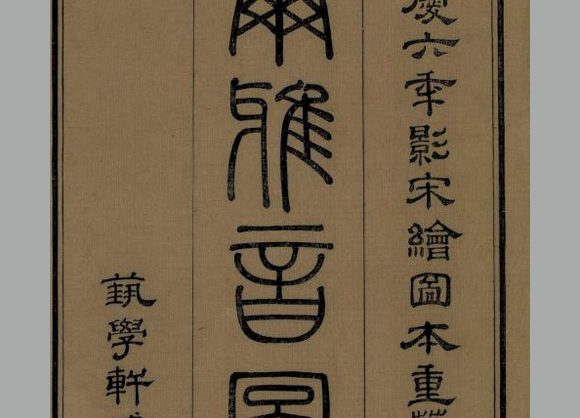 慶六年影宋繪圖本重
爾雅音圖
藝學軒